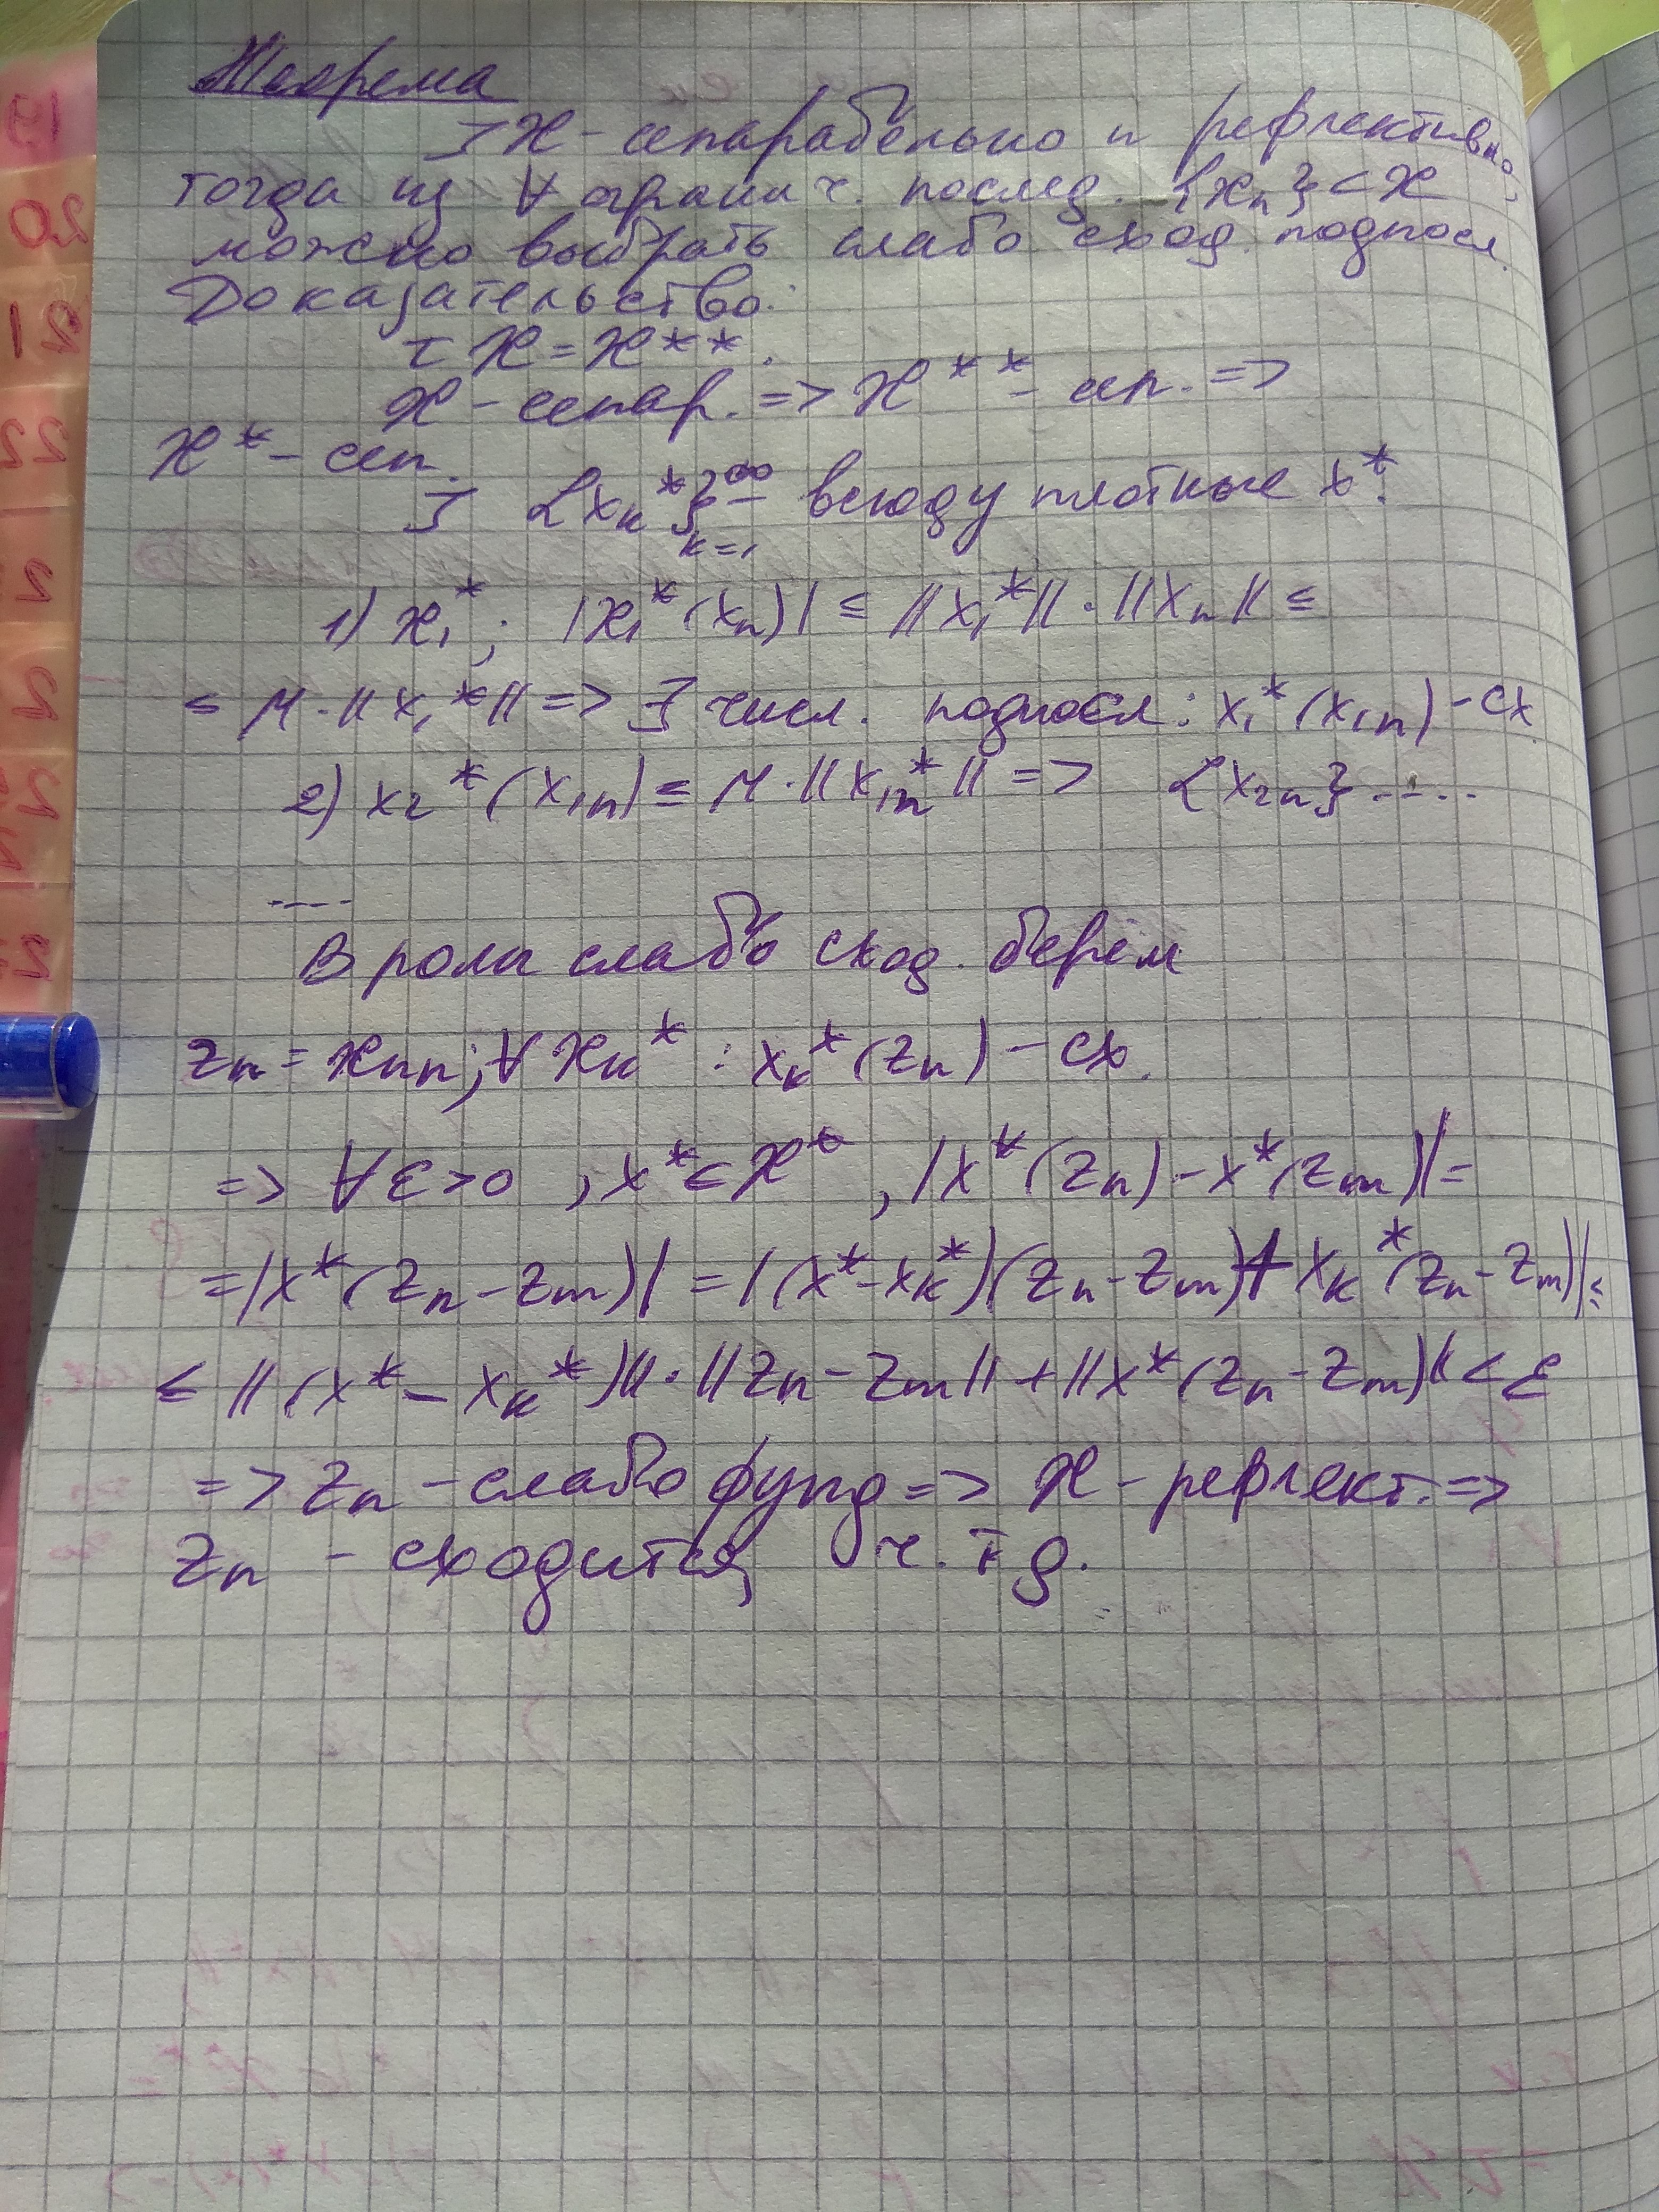 Теорема
⊐ X - сепарабельно и рефлективно,
тогда из ∀ огранич. послед. {xₙ} ⊂ X
можно выбрать слабо сход. подпосл.
Доказательство:
τX = X**.
X - сепар. => X** - сеп. =>
X* - сеп.
⊐ {xₖ*}∞ₖ₌₁ - всюду плотные x*.
1) x₁*; |x₁*(xₙ)| ≤ ||x₁*||·||xₙ|| ≤
≤ M·||x₁*|| => ∃ числ. подпосл: x₁*(x₁ₙ) - сх
2) x₂*(x₁ₙ) ≤ M·||x₁ₙ*|| => {x₂ₙ} ....
----
В роли слабо сход. берём
zₙ = xₙₙ; ∀ xₖ* : xₖ*(zₙ) - сх.
=> ∀ε>0, x* ∈ X*, |x*(zₙ) - x*(zₘ)| =
= |x*(zₙ - zₘ)| = |(x* - xₖ*)(zₙ - zₘ) + xₖ*(zₙ - zₘ)| ≤
≤ ||(x* - xₖ*)||·||zₙ - zₘ|| + ||x*(zₙ - zₘ)|| < ε
=> zₙ - слабо фунд => X - рефлект. =>
zₙ - сходится, ч.т.д.